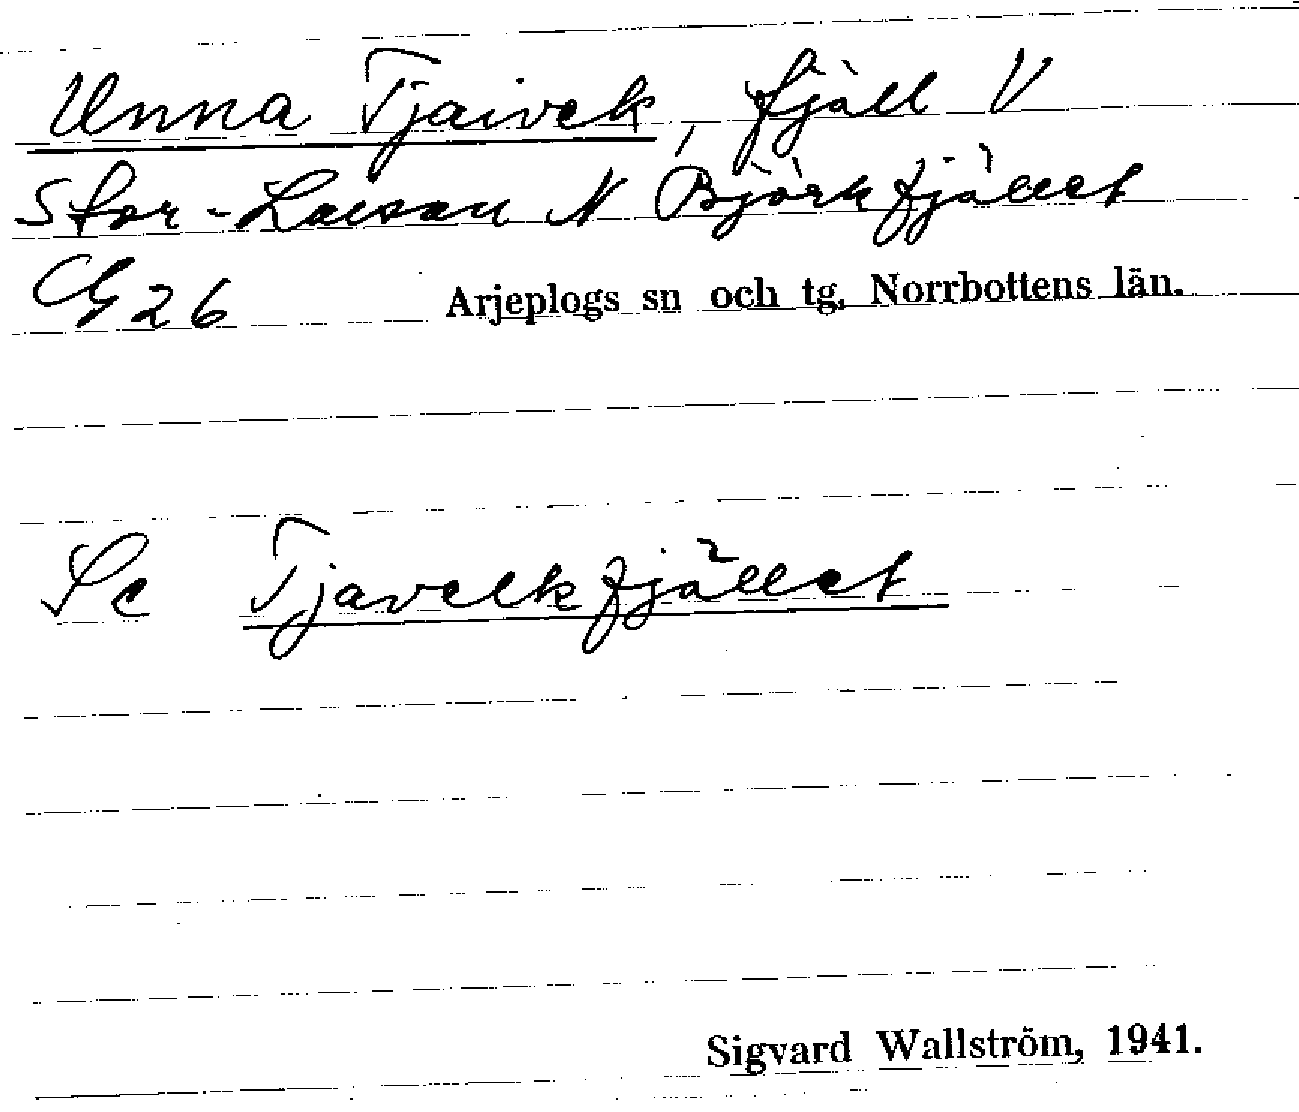 Unna Tjaivek, fjäll V
Stor-Laisan N Björkfjället
G 26 Arjeplogs sn och tg. Norrbottens län.
Se Tjavelkfjället
Sigvard Wallström, 1941.